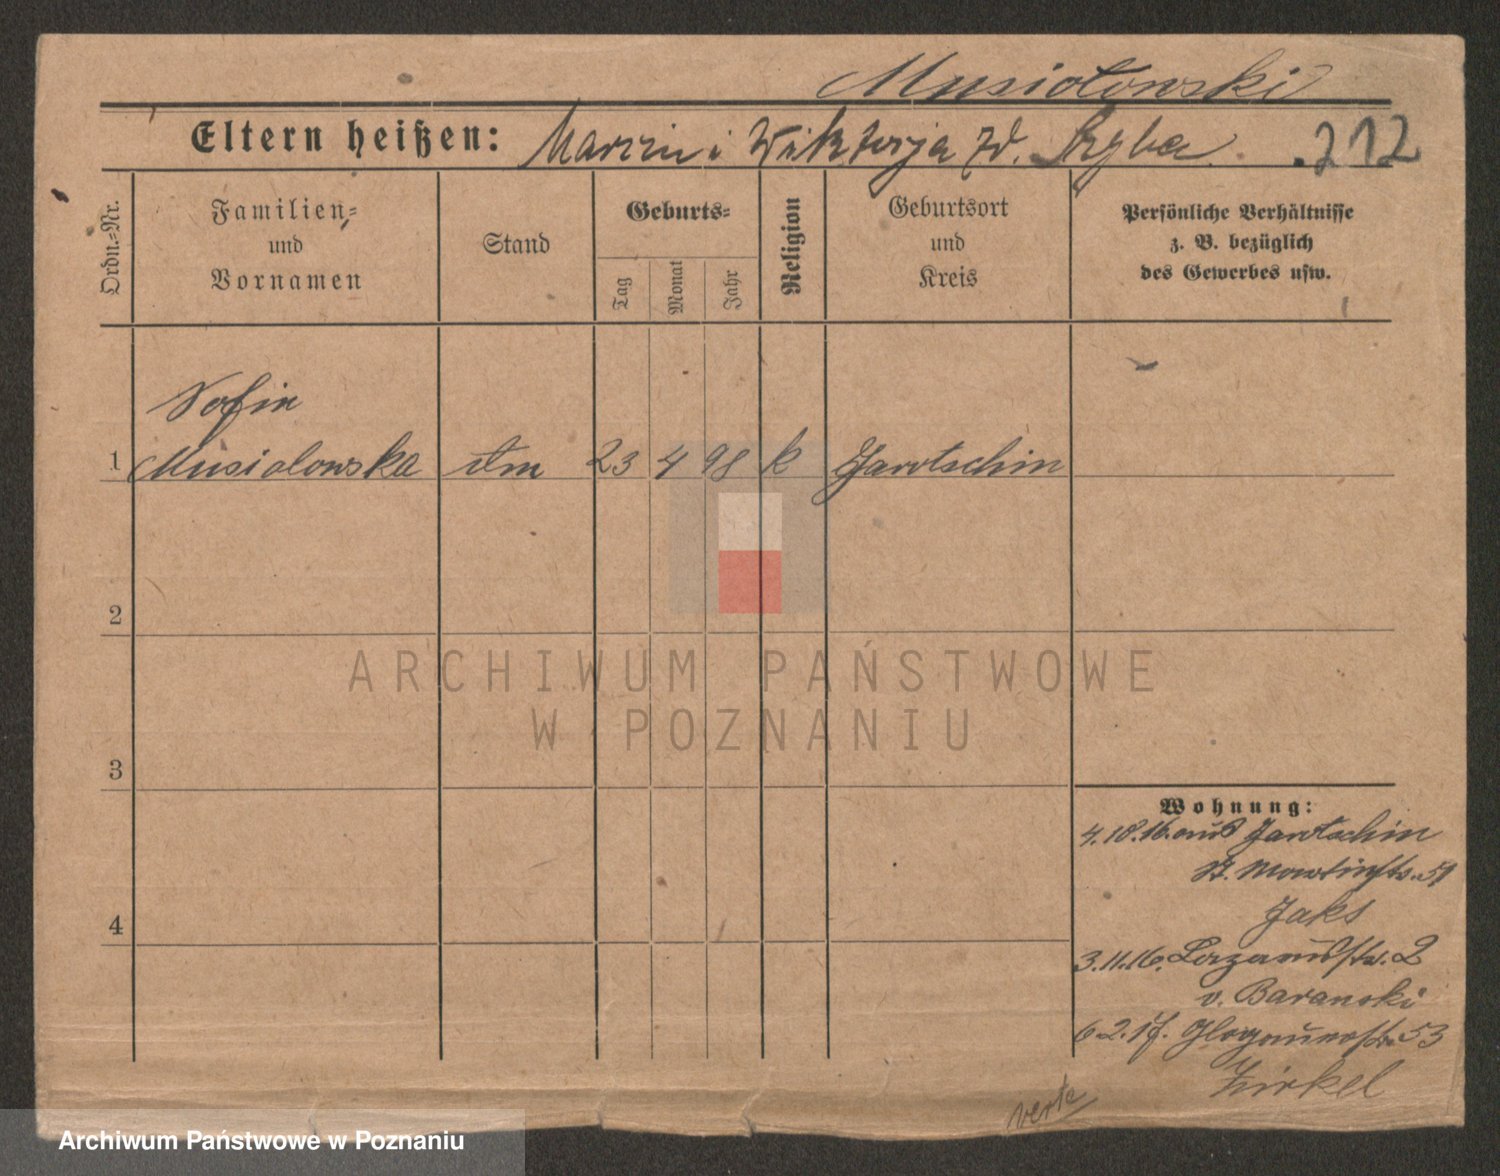 Musiołowski
Eltern heißen: Marcin i Wiktorja zd. Ryba 212
Ordn.-Nr.
Familien-
und
Vornamen
Stand
Geburts-
Tag
Monat
Jahr
Religion
Geburtsort
und
Kreis
Persönliche Verhältnisse
z. B. bezüglich
des Gewerbes usw.
Sofie
1 Musialowska 23 4 98 k Jarotschin
2
3
4
Wohnung:
4.10.16. aus Jarotschin
St. Martinstr. 51
Jaks
3.11.16. Lazarusstr. 2
v. Baranski
6.2.17. Glogauerstr. 53
Zirkel
verte
ARCHIWUM PAŃSTWOWE
W POZNANIU
Archiwum Państwowe w Poznaniu